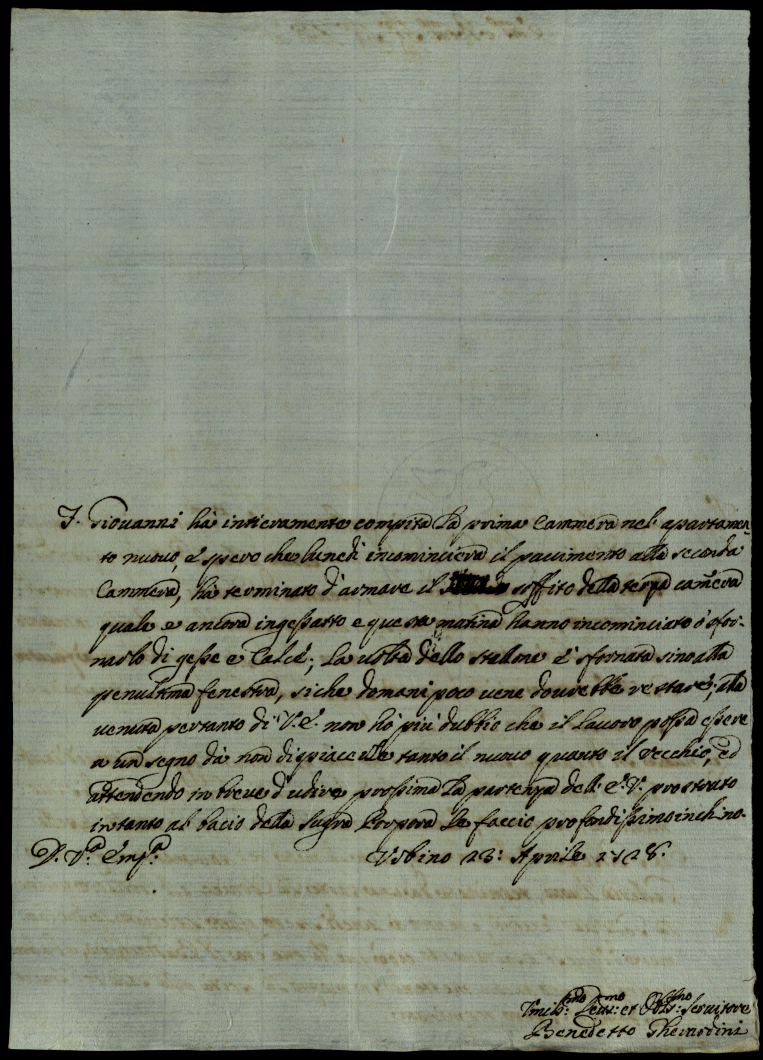 F. Giovanni hà intieramente compita la prima Cammera nel apartamen
to nuovo, e spero che lunedi incomincierà il pavimento alla seconda
Cammera, hà terminato d'armare il soffito della terza camera
quale e ancora ingessatto e questa matina hanno incominciato
narlo di gesse e Calce; la volta dello stallone è sfornata sino alla
penultima fenestra, si che domani poco vene dovrebbe restare; alla
venuta pertanto di V. E. non hò più dubbio che il lavoro possa essere
a un segno dà non dispiacerle tanto il nuovo quanto il vecchio, ed
attendendo in breve d'udire prossima la partenza dell E. V. prostrato
intanto al bacio della Sagra Porpora le faccio profondissimo inchino.
D. V.ra Emz.a Urbino 23: Aprile 1728.
Umilis:mo Devot:mo et Oblig:mo Servitore
Benedetto Gherardini